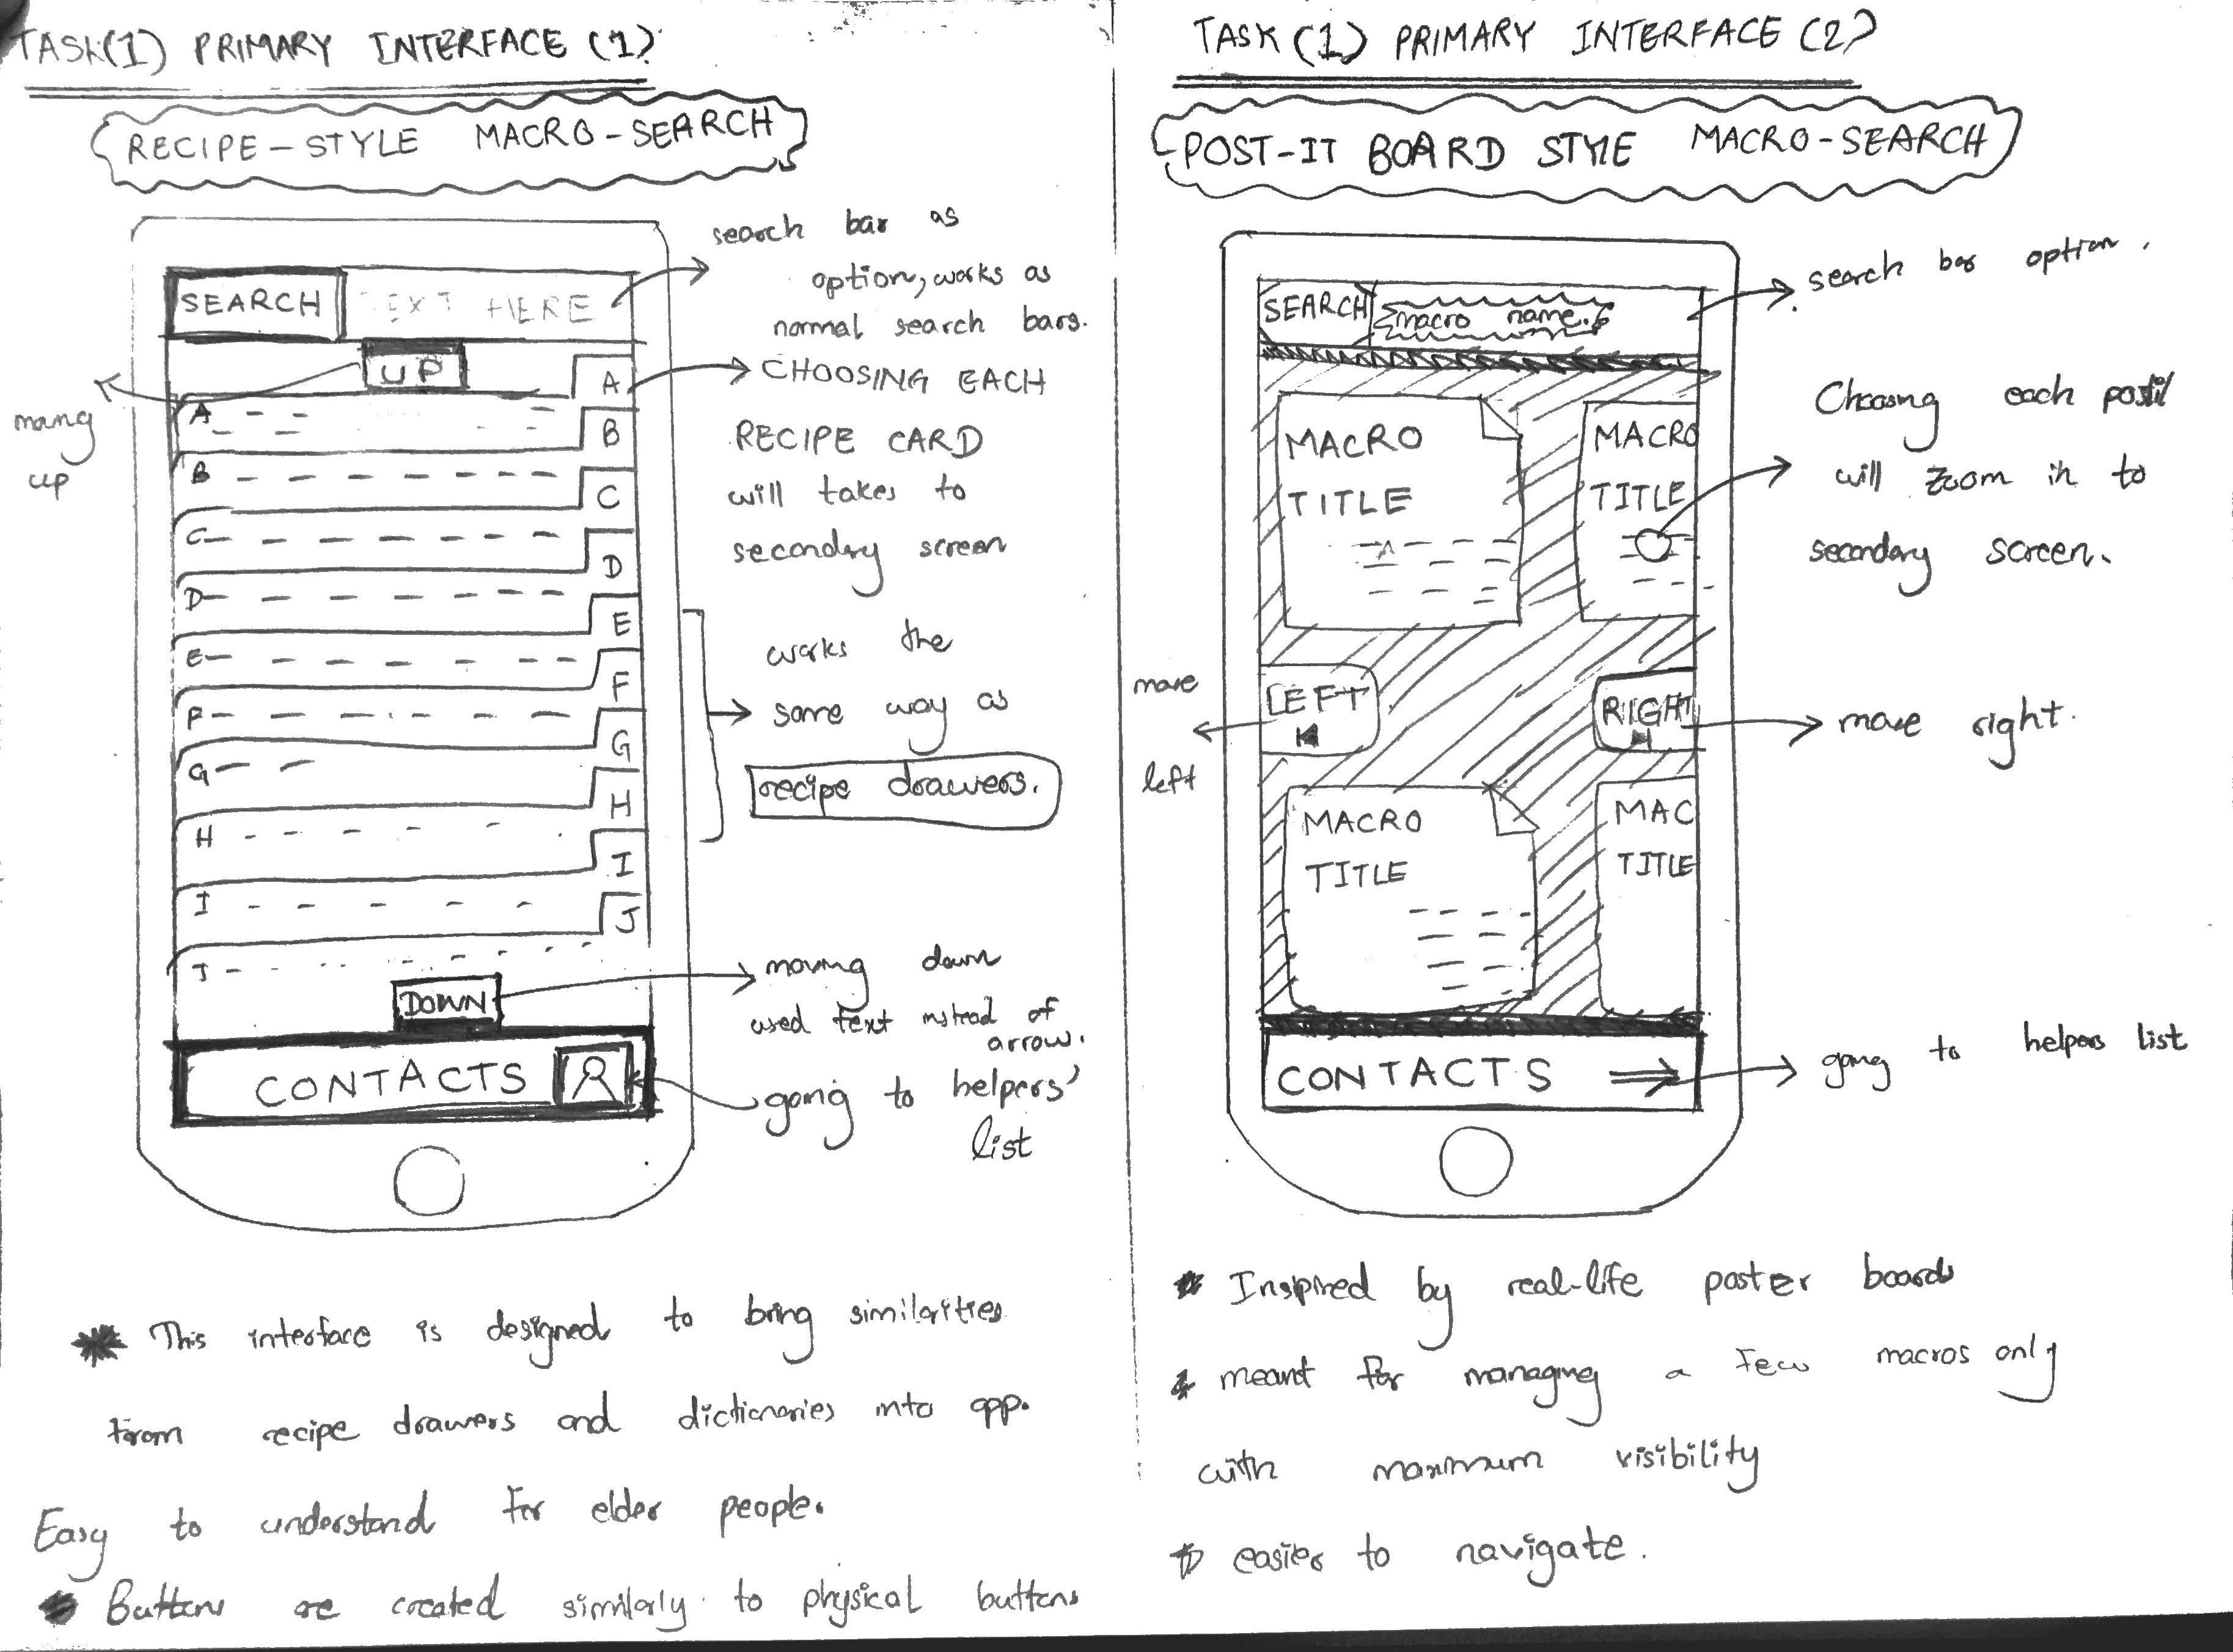 TASK(1) PRIMARY INTERFACE (1)
RECIPE-STYLE MACRO-SEARCH
SEARCH TEXT HERE
search bar as
option, works as
normal search bars.
UP
A
CHOOSING EACH
RECIPE CARD
will takes to
secondry screen
up
A
B
B
C
C
D
D
E
E
F
F
G
G
H
H
I
I
J
J
works the
same way as
recipe drawers.
DOWN
moving down
used text instead of
arrow.
CONTACTS
going to helpers'
list
This interface is designed to bring similarities
from recipe drawers and dictionaries into app.
Easy to understand for elder people.
Buttons are created similarly to physical buttons
TASK (1) PRIMARY INTERFACE (2)
POST-IT BOARD STYLE MACRO-SEARCH
SEARCH macro name.
search bar option.
MACRO
TITLE
MACRO
TITLE
Choosing each postit
will zoom in to
secondary screen.
LEFT
move
left
RIGHT
move right.
MACRO
TITLE
MAC
TITLE
CONTACTS
going to helpers list
Inspired by real-life poster boards
meant for managing a few macros only
with maximum visibility
easier to navigate.